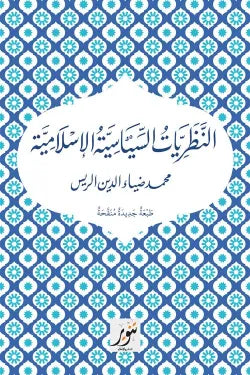 النَّظَرِيَّاتُ السِّيَاسِيَّةُ الإِسْلَامِيَّة
محمد ضياء الدين الريس
طَبْعَةٌ جَدِيدَةٌ مُنَقَّحَةٌ